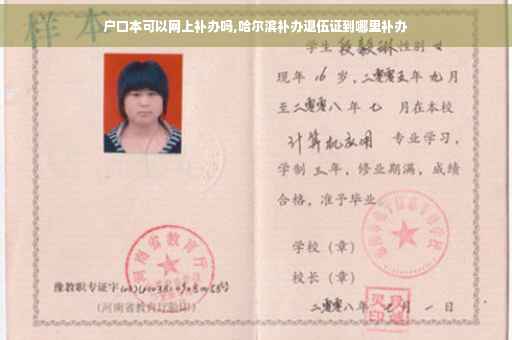 户口本可以网上补办吗,哈尔滨补办退伍证到哪里补办
样本
学生段毅琳性别女
现年16岁，二零零五年九月
至二零零八年七月在本校
计算机应用专业学习，
学制三年，修业期满，成绩
合格，准予毕业
学校（章）
校长（章）
二零零八年七月一日
河南省教育厅
豫教职专证字
(河南省教育厅验印)